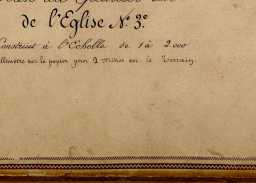 de l'Eglise N.º 3.º
Construit à l'Echelle de 1 à 2.000
sur le papier pour 2 Mètres sur le Terrain.